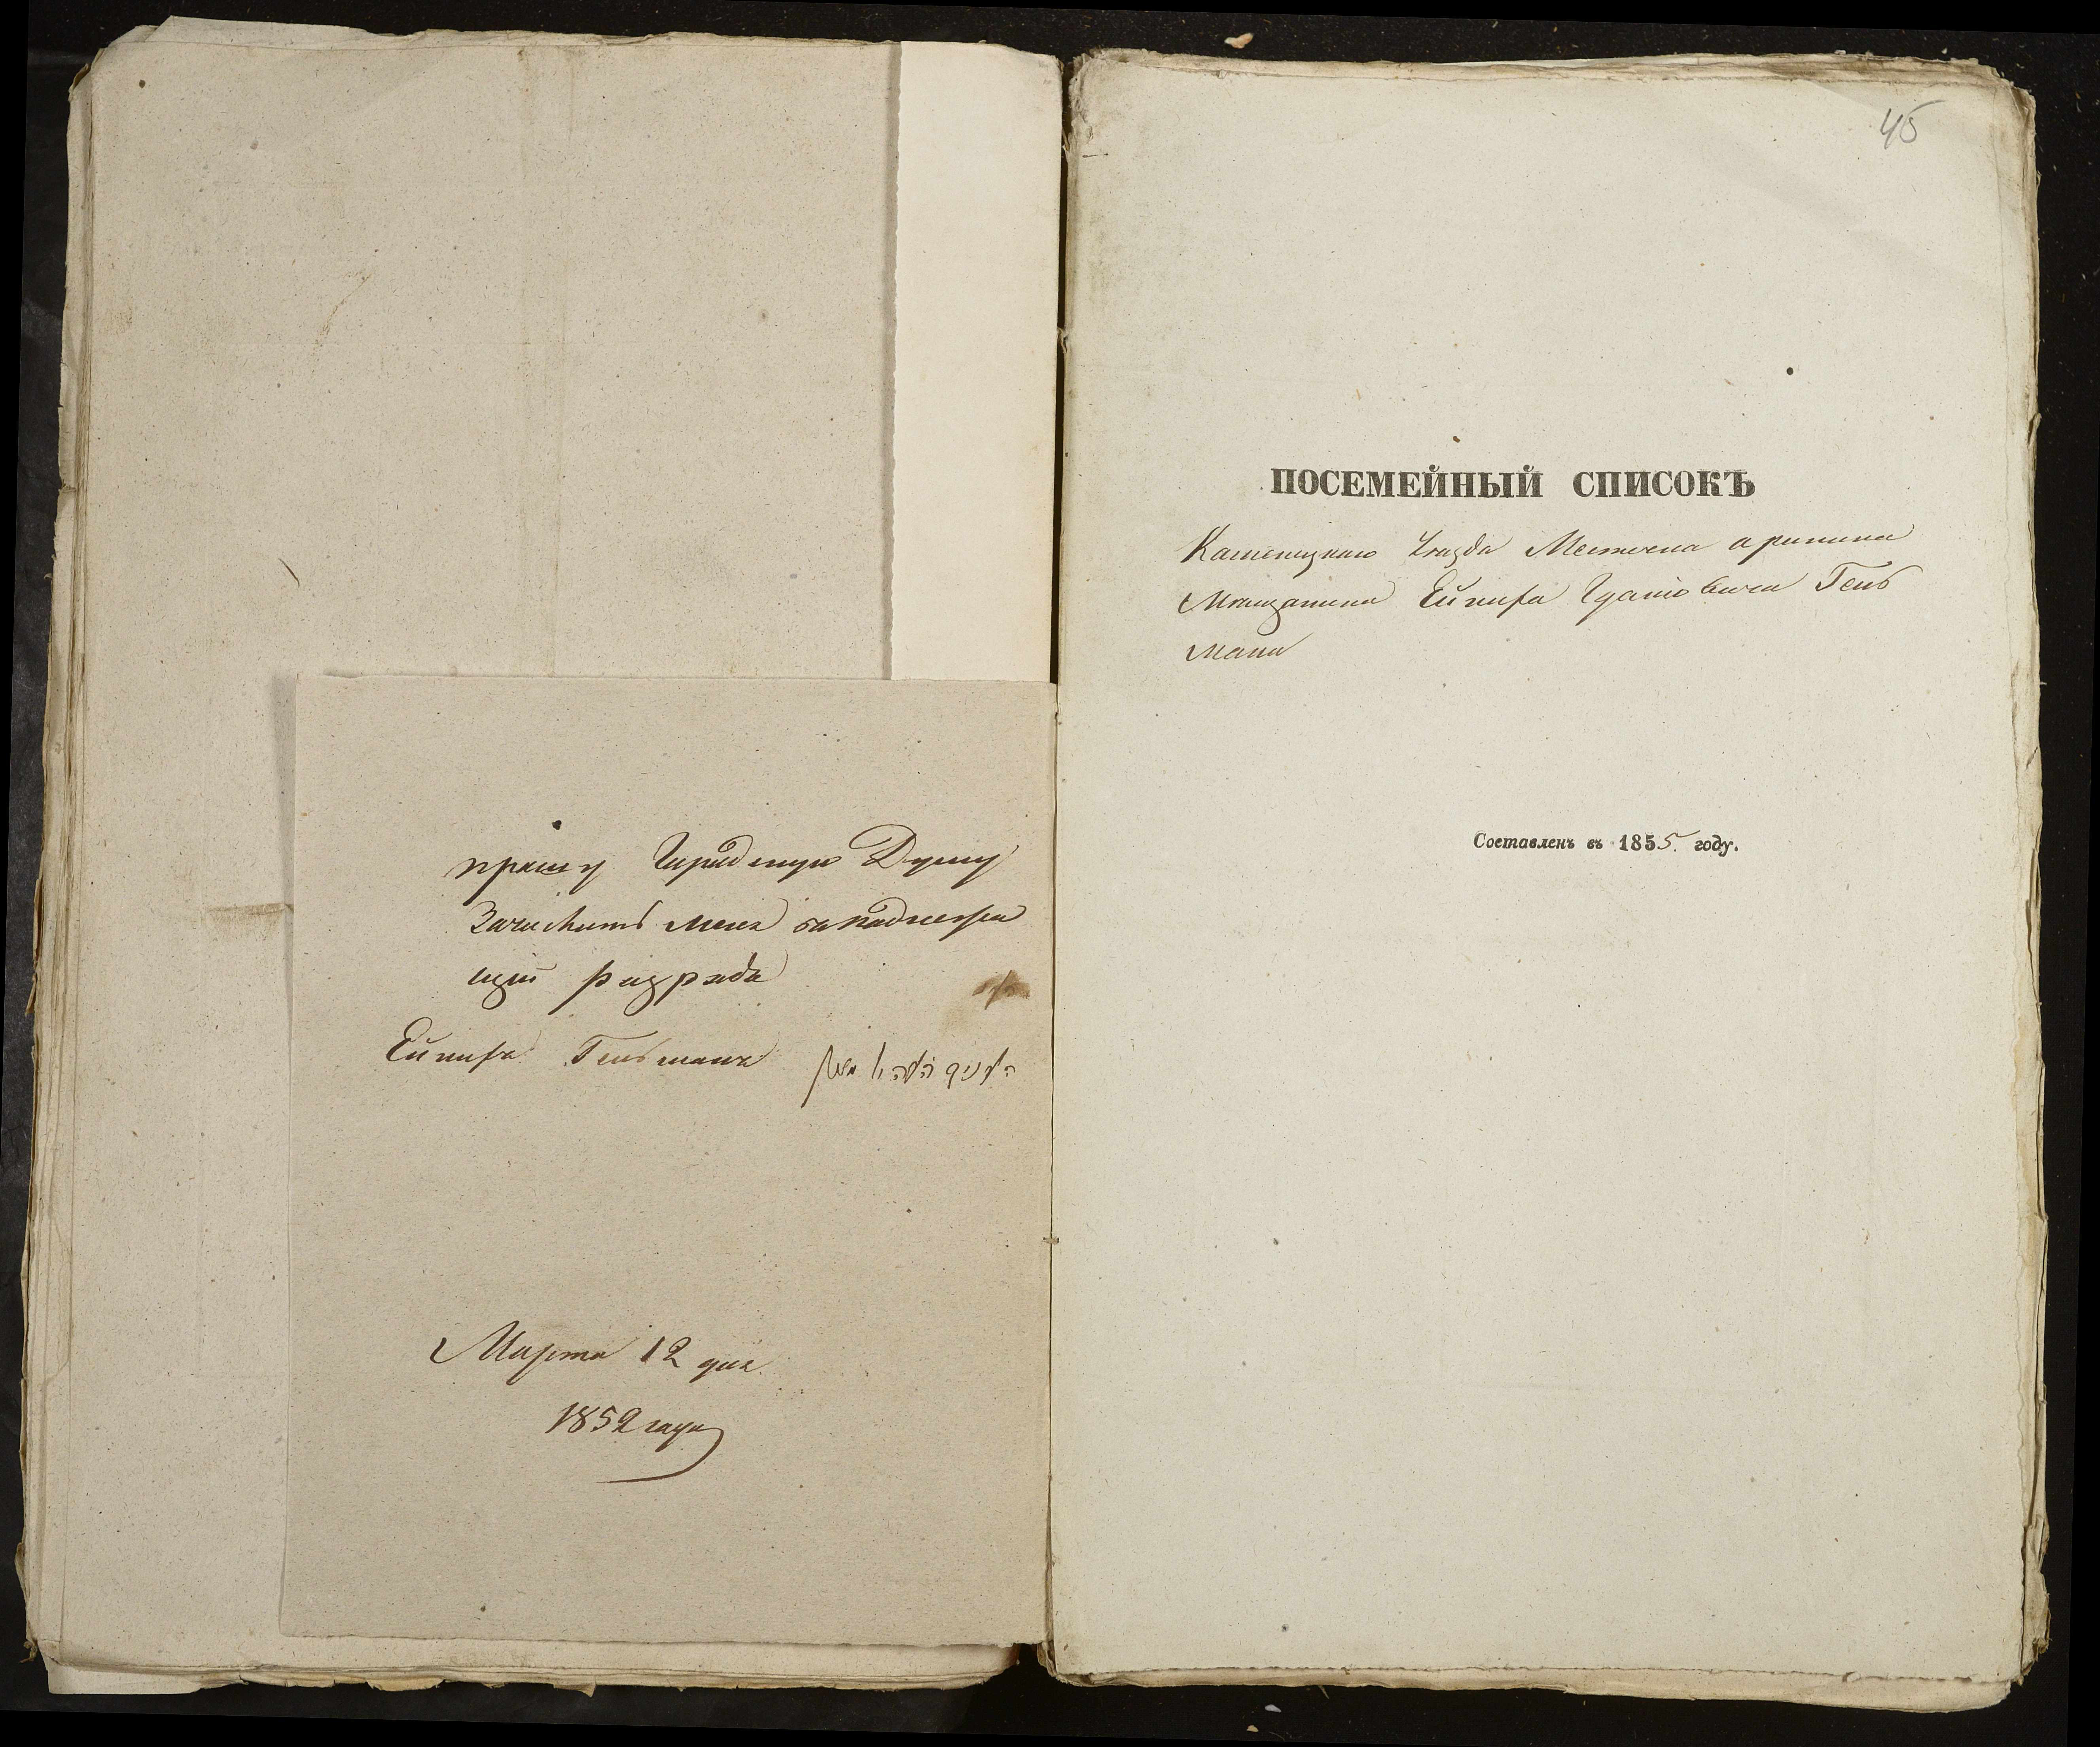 прашу Гарадскую Думу
Зачислить меня въ надлежа
щій разрядъ
Ейниха Гельмана
Марта 12 дня
1852 года
45
ПОСЕМЕЙНЫЙ СПИСОКЪ
Каменецкаго Уезда Местечка
Мещанина Ейниха Гель
мана
Составленъ въ 1855 году.